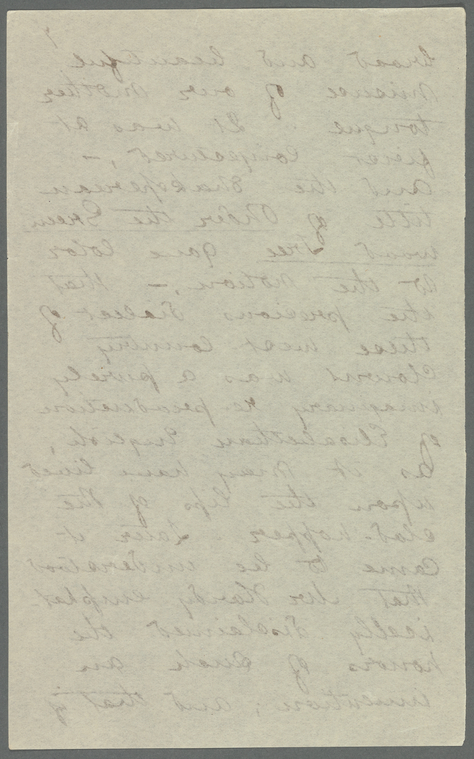 7
broad and beautiful
misuse of our mother
tongue. It was at
first conjectured, –
and the Shakesperian
title of Under the Green
wood Tree gave color
to the notion, – that
the precious dialect of
these west country
clowns was a purely
imaginary re production
of Elizabethan English,
as it may have lived
upon the lips of the
clod-hopper. Later it
came to be understood
that Mr Hardy emphat
ically disclaimed the
honors of such an
invention; and that if